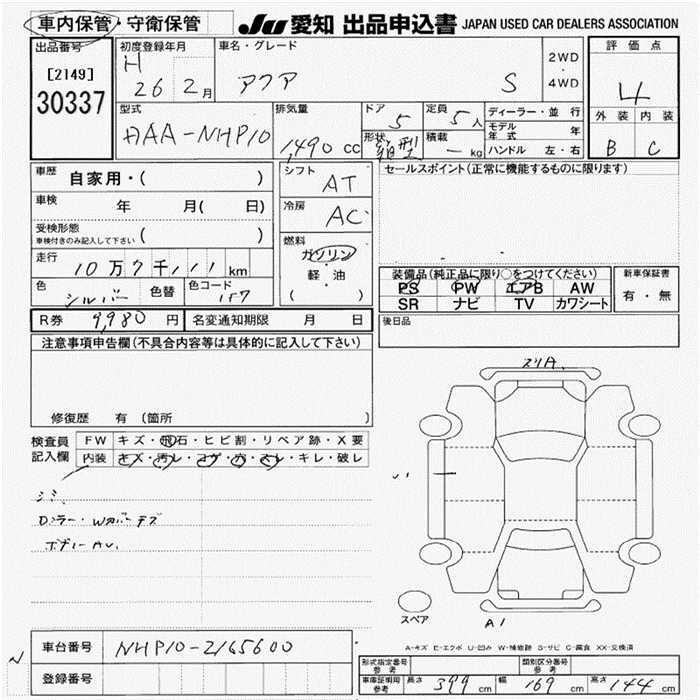 車内保管・守衛保管 JU 愛知 出品申込書 JAPAN USED CAR DEALERS ASSOCIATION
出品番号 初度登録年月 車名・グレード 評価点
[2149] H 26 2月 アクア S 2WD・4WD 4
30337 型式 排気量 ドア 定員 ディーラー・並行 外装 内装
DAA-NHP10 1,490 cc 5 5人 モデル年式 年 B C
形状 箱型 積載 ー kg ハンドル 左・右
車歴 自家用・( ) シフト AT セールスポイント(正常に機能するものに限ります)
車検 年 月( 日) 冷房 AC
受検形態 ( )
車検付きのみ記入して下さい
燃料 ガソリン・軽油 ( )
走行 10万7千111km 装備品(純正品に限り○をつけてください) 新車保証書
色 シルバー 色替 色コード 1F7 PS PW エアB AW 有・無
SR ナビ TV カワシート
R券 9,980円 名変通知期限 月 日 後日品
注意事項申告欄(不具合内容等は具体的に記入して下さい)
修復歴 有 (箇所
スリA
検査員 FW キズ・飛石・ヒビ割・リペア跡・X要
記入欄 内装 キズ・汚レ・コゲ・穴・スレ・キレ・破レ
シミ
Dミラー・Wカバーキズ
ボデーAU
スペア
A1
A-キズ E-エクボ U-凹み W-補修跡 S-サビ C-腐食 XX-交換済
車台番号 NHP10-2165600
登録番号
形式指定番号 参考 類別区分番号 参考
車庫証明用 参考 長さ 399cm 幅 169cm 高さ 144cm